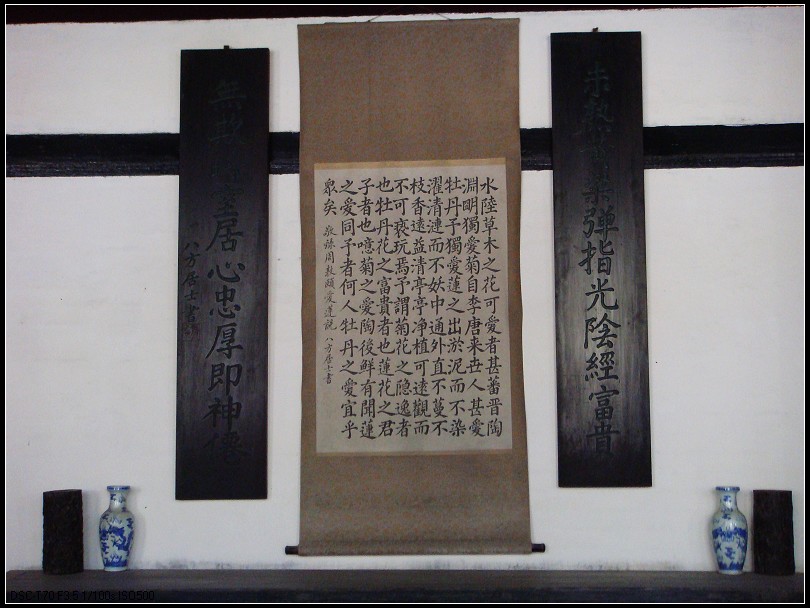 未熟粱彈指光陰經富貴
水陸草木之花可愛者甚蕃晋陶
淵明獨愛菊自李唐来世人甚愛
牡丹予獨愛蓮之出於泥而不染
濯清漣而不妖中通外直不蔓不
枝香遠益清亭亭净植可遠觀而
不可褻玩焉予謂菊花之隠逸者
也牡丹花之富貴者也蓮花之君
子者也噫菊之愛陶後鮮有聞蓮
之愛同予者何人牡丹之愛宜乎
衆矣
敬録周敦頤愛蓮説 八方居士書
無居心忠厚即神僊
八方居士書
DSC-T70 F3.5 1/100; ISO500